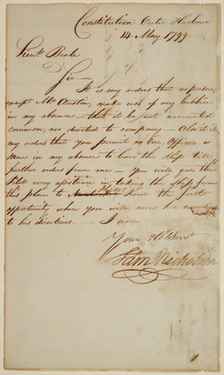 Constitution Outer Harbour
14 May 1799
Lieut Beale
Sir
It is my orders that no person,
except Mr Austin, make use of my Cabbin
in my absence - that it be not
common, nor devoted to company - Also it is
my orders that you permit no One Officer or
Man in my absence to leave the Ship till
further orders from me - You will give the
Pilot every assistance in taking the Ship from
this place to the first
opportunity when you will moor her
to his directions. - I am
Your Hble Servt
Sam Nicholson